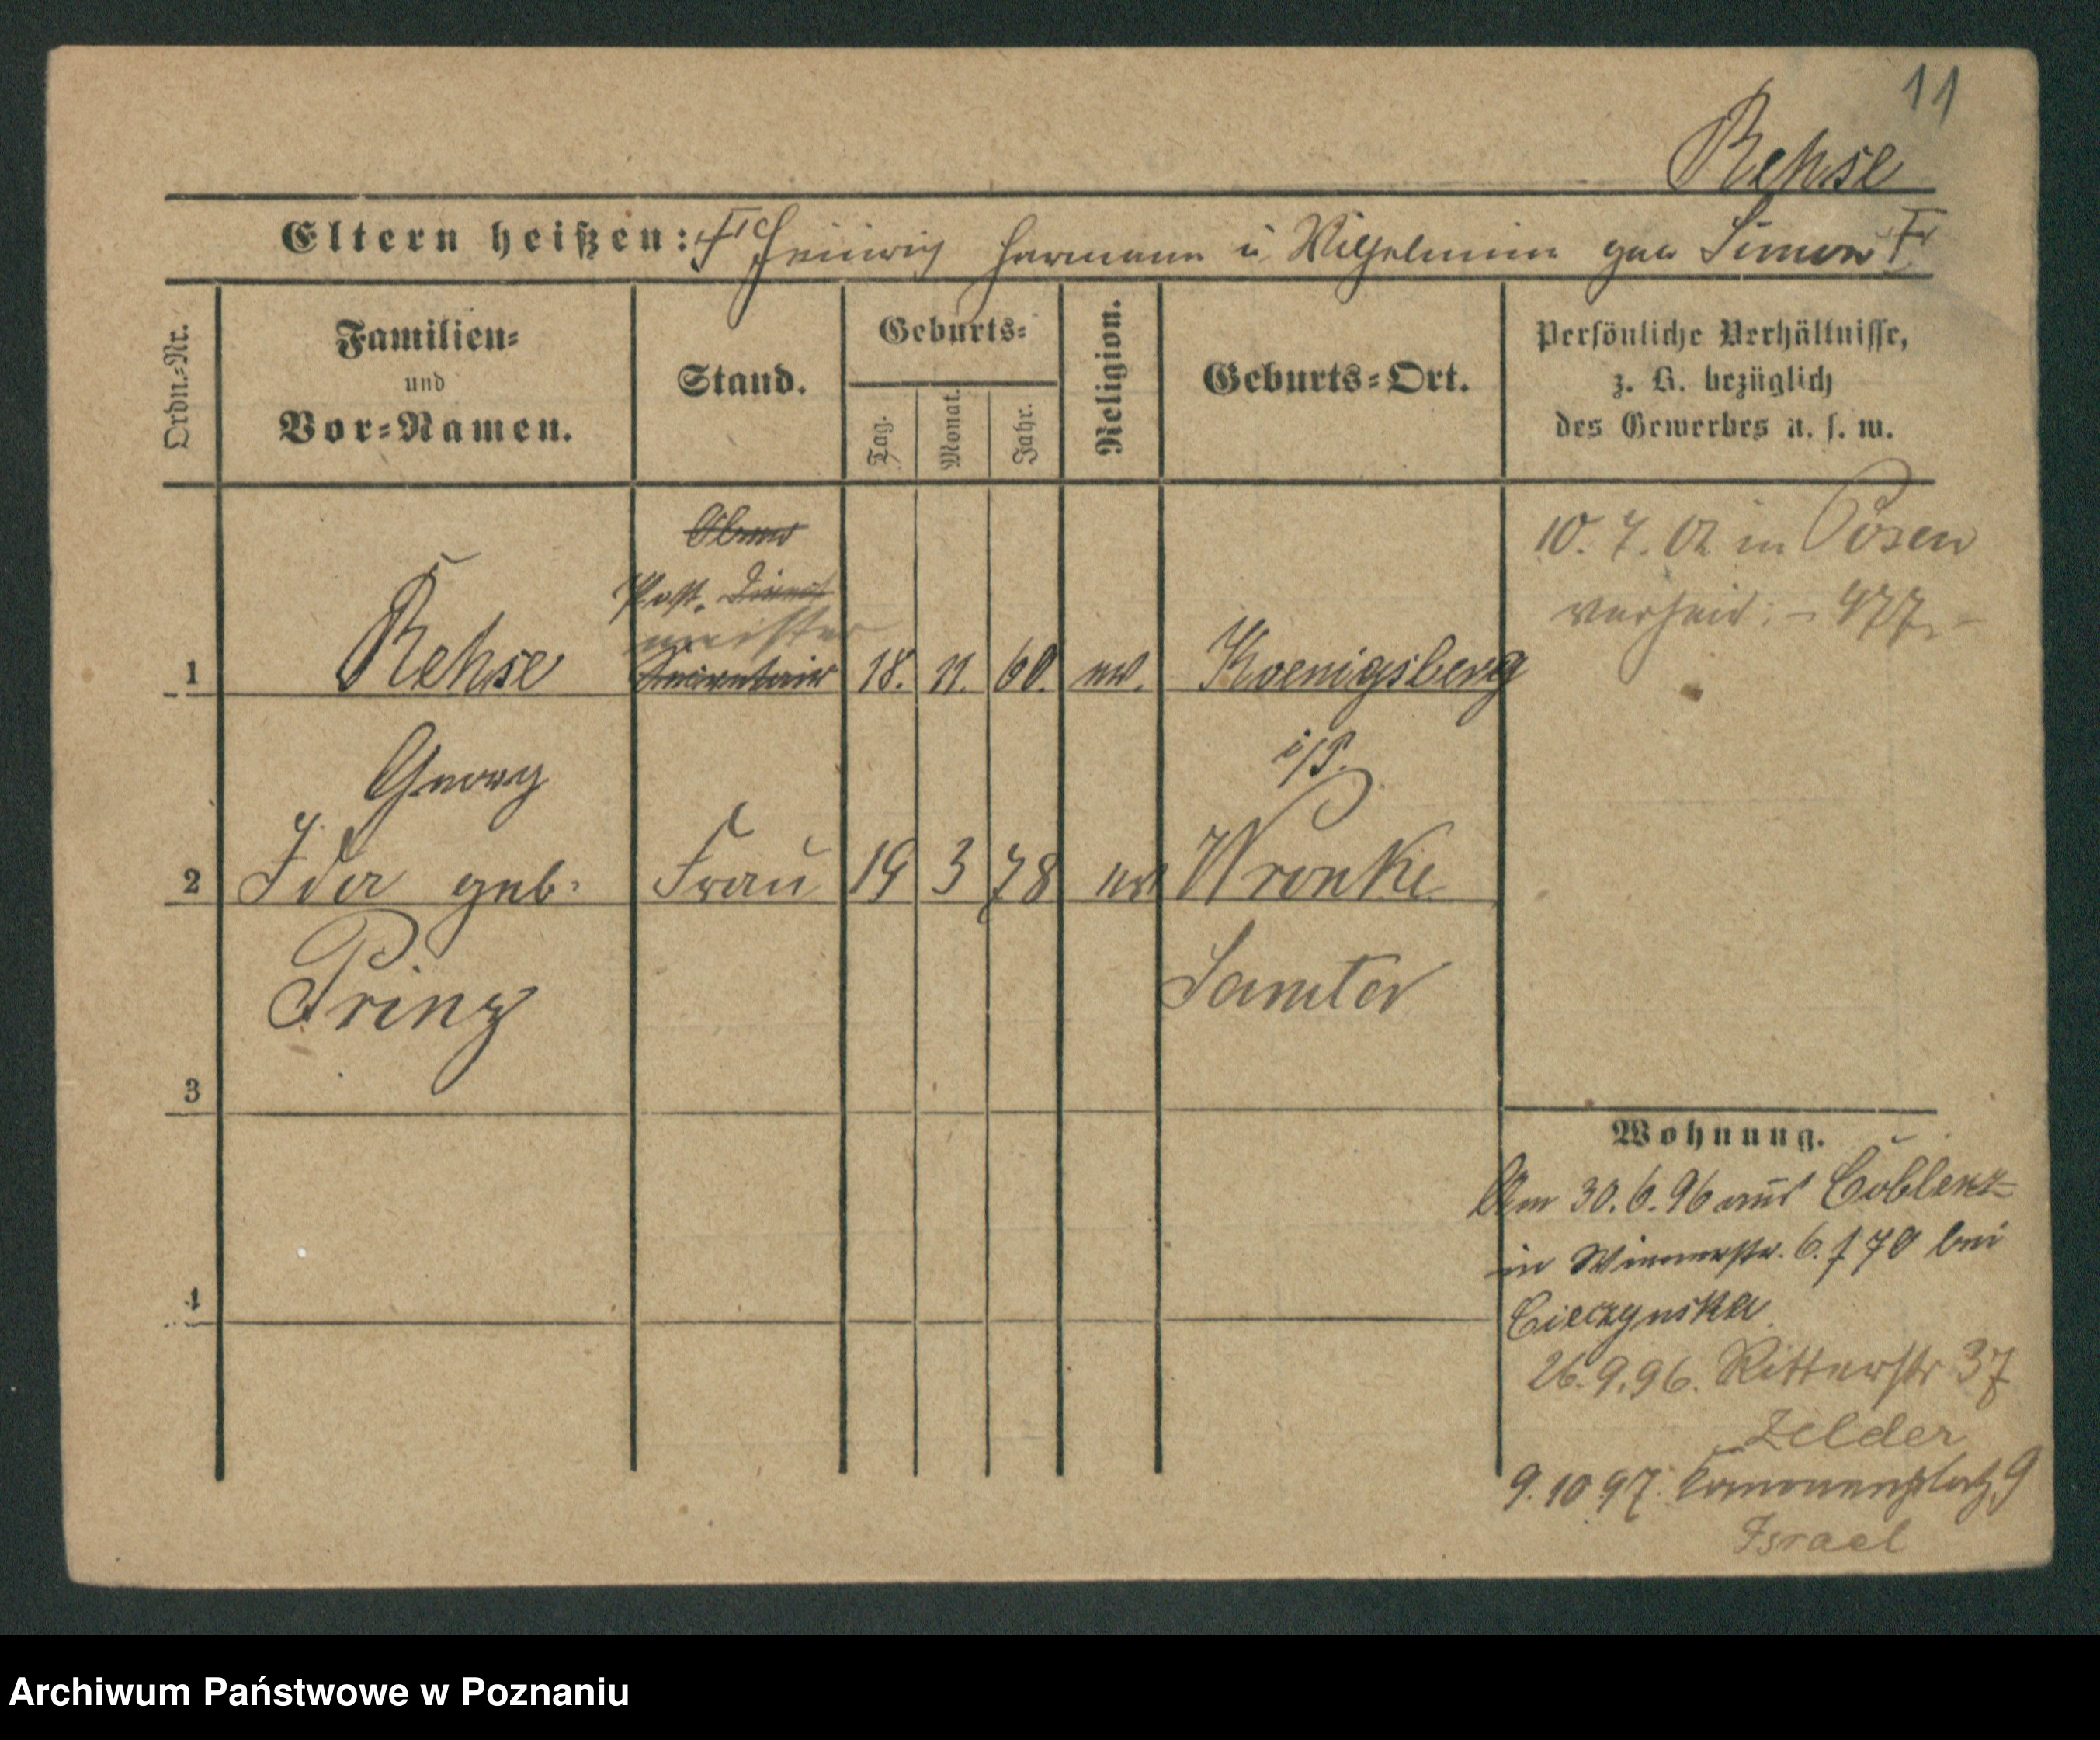 11
Rehse
Eltern heißen: Heinrich Hermann u. Wilhelmine geb Simon
Ordn.-Nr.
Familien- und Vor-Namen.
Stand.
Geburts-
Tag.
Monat.
Jahr.
Religion.
Geburts-Ort.
Persönliche Verhältnisse,
z. B. bezüglich
des Gewerbes u. s. w.
Ober
Post.
meister
1 Rehse Secretair 18. 11. 60. ev. Koenigsberg
Georg i/P.
10. 7. 02 in Posen
verheir. - 477.-
2 Ida geb. Frau 19 3 78 ev Wronke
Prinz Samter
3
4
Wohnung.
Am 30.6.96 aus Coblenz
in Wienerstr. 6. f 70 bei
Cieczynska
26.9.96. Ritterstr 37
Zelder
9.10 97. Kanonenplatz 9
Israel
Archiwum Państwowe w Poznaniu